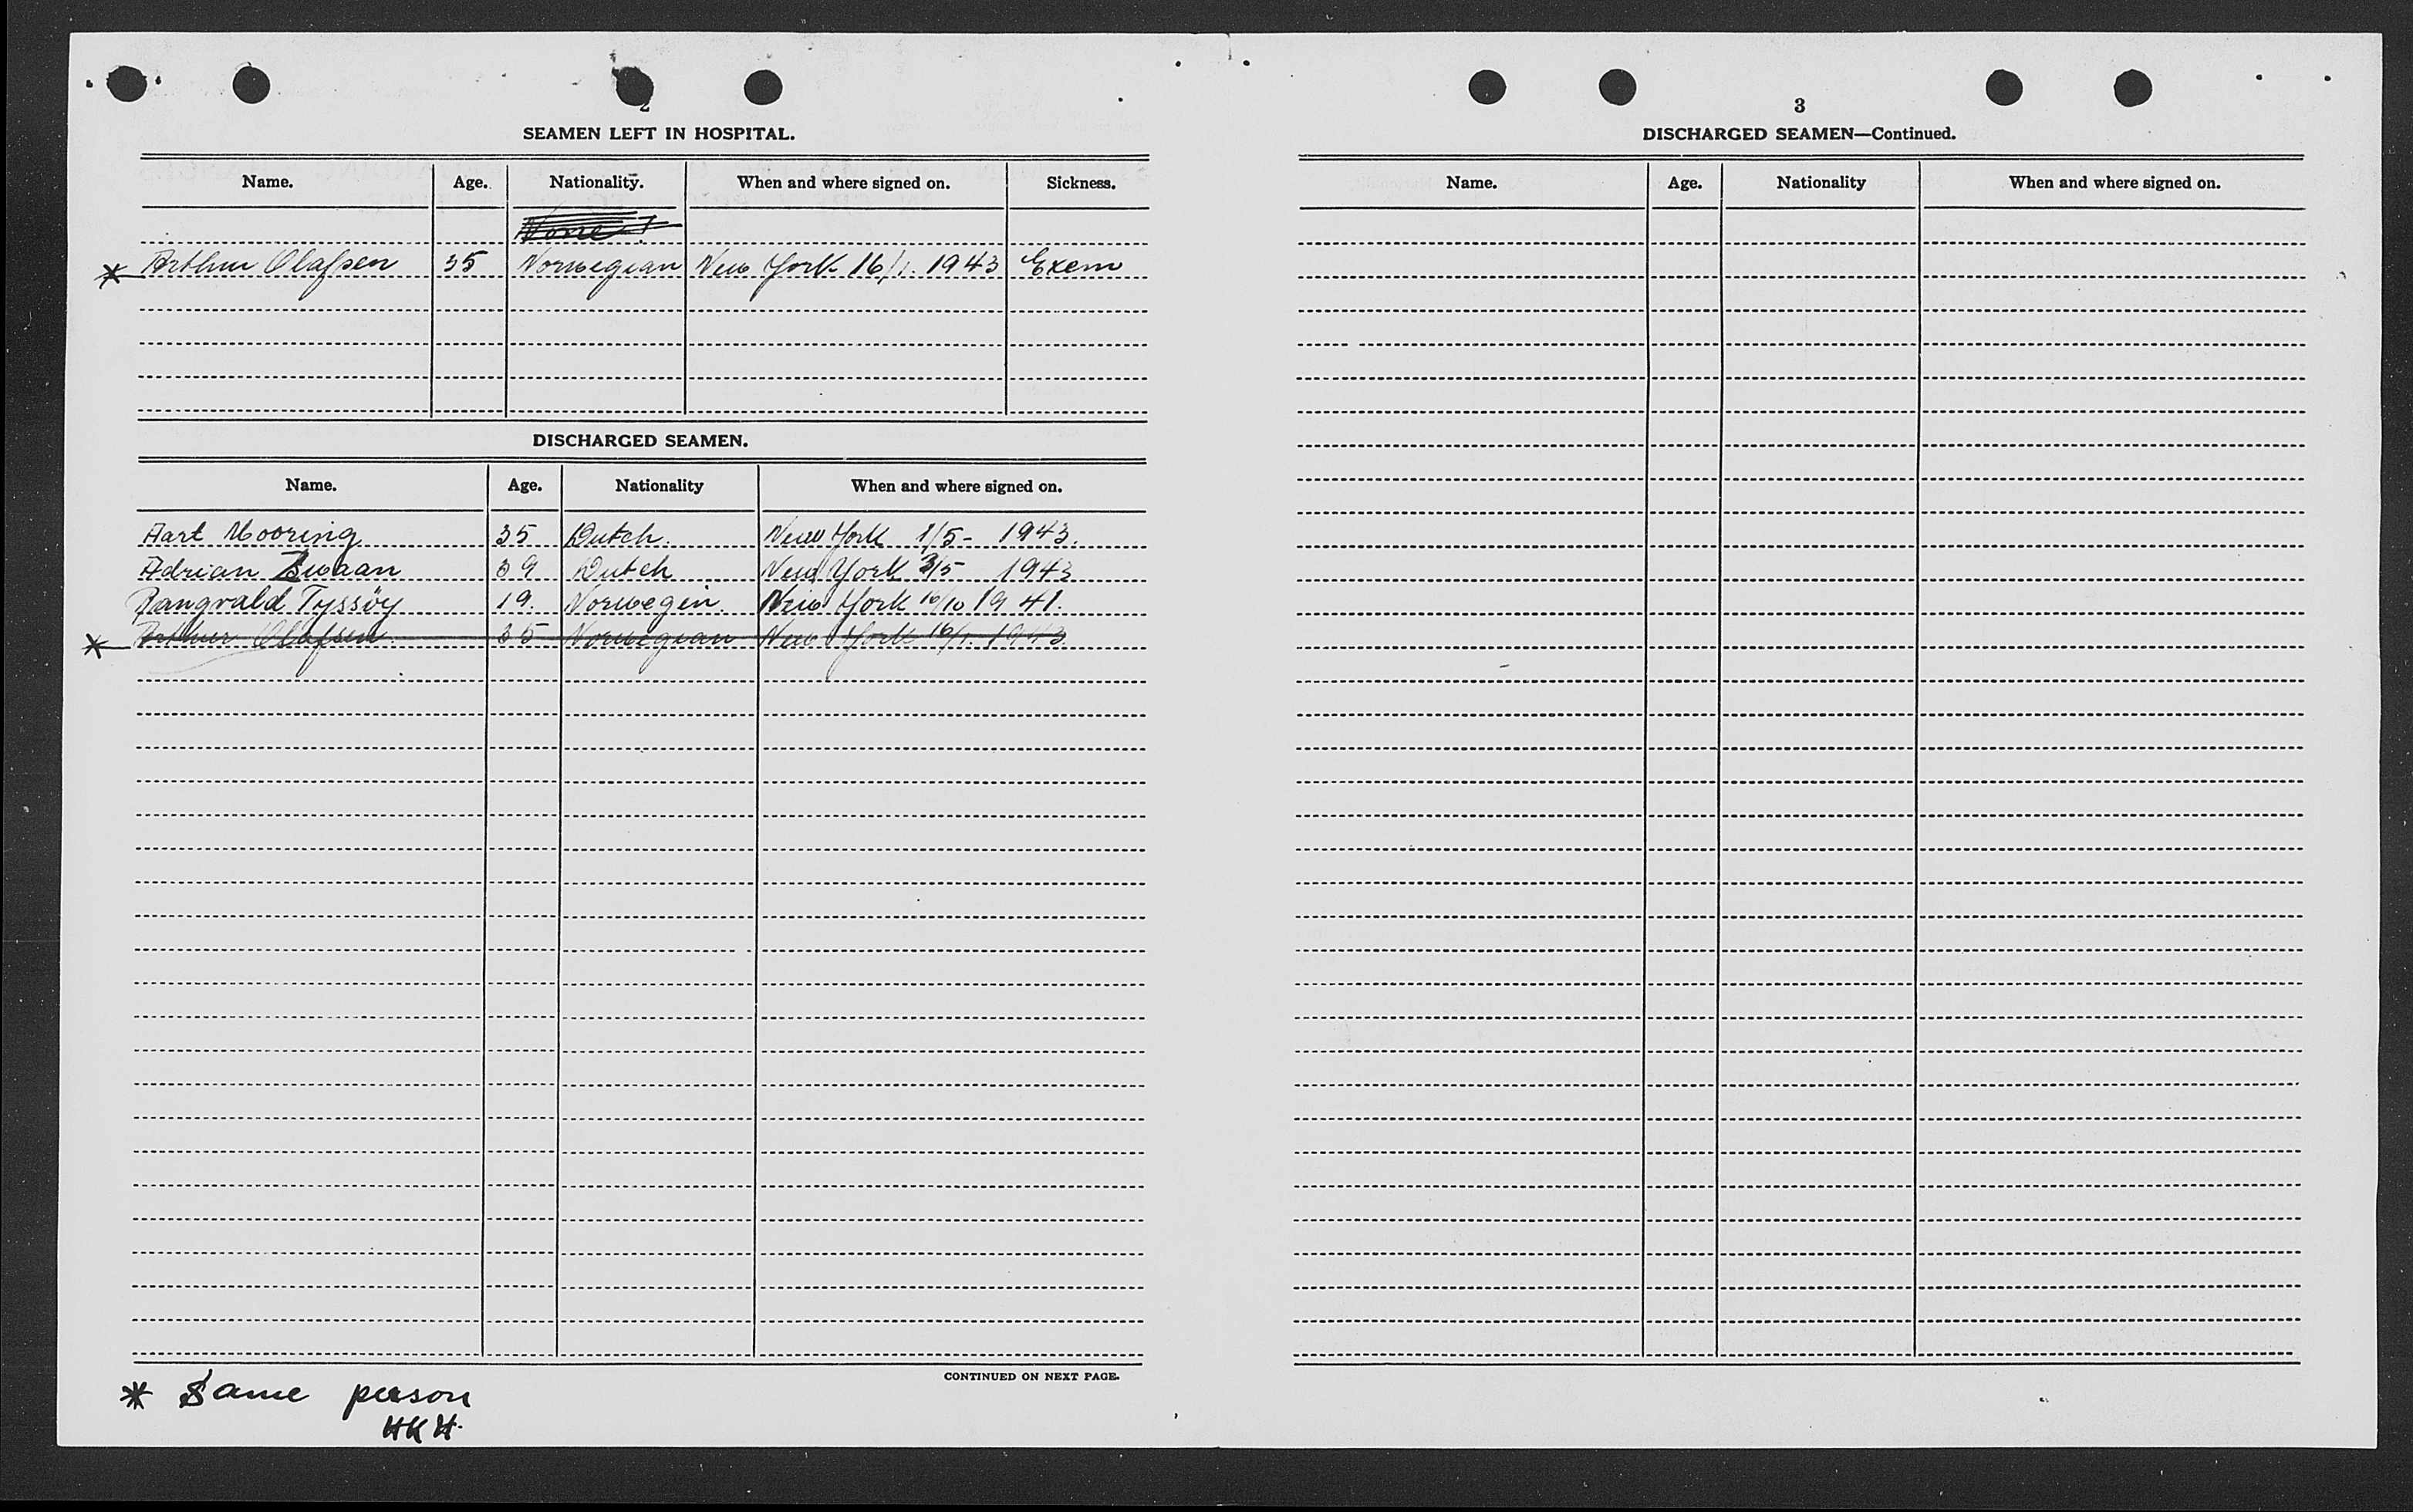 2
SEAMEN LEFT IN HOSPITAL.
Name. Age. Nationality. When and where signed on. Sickness.
None
* Arthur Olafsen 35 Norwegian New York 16/1. 1943 Exem
DISCHARGED SEAMEN.
Name. Age. Nationality When and where signed on.
Aart Mooring 35 Dutch. New York 1/5- 1943.
Adrian Zwaan 39 Dutch New York 3/5 1943
Rangvald Tyssöy 19. Norwegin. New York 10/10 1941.
* Arthur Olafsen 35 Norwegian New York 16/1. 1943
CONTINUED ON NEXT PAGE.
* Same person
HKH.
3
DISCHARGED SEAMEN—Continued.
Name. Age. Nationality When and where signed on.